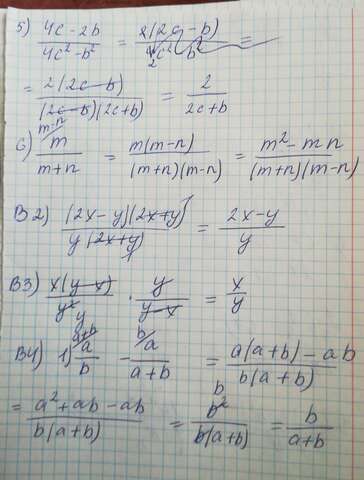 5) (4c - 2b)/(4c² - b²) = 2(2c - b)/(4c² b²) =
= 2(2c - b)/((2c - b)(2c + b)) = 2/(2c + b)
6) m/(m + n) ^(m - n) = m(m - n)/((m + n)(m - n)) = (m² - mn)/((m + n)(m - n))
B2) (2x - y)(2x + y)/(y(2x + y)) = (2x - y)/y
B3) x(y - x)/y² · y/(y - x) = x/y
B4) 1) a/b ^(a + b) - a/(a + b) ^b = (a(a + b) - ab)/(b(a + b))
= (a² + ab - ab)/(b(a + b)) = b²/(b(a + b)) = b/(a + b)